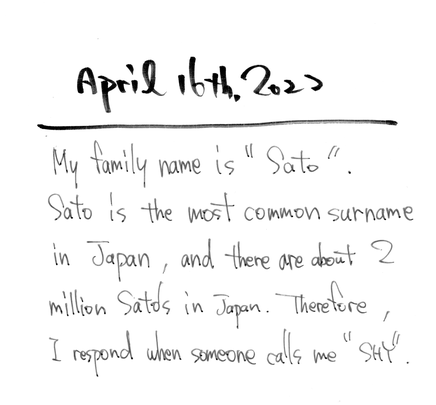 April 16th, 2022
My family name is "Sato".
Sato is the most common surname
in Japan, and there are about 2
million Satos in Japan. Therefore,
I respond when someone calls me "SHY".